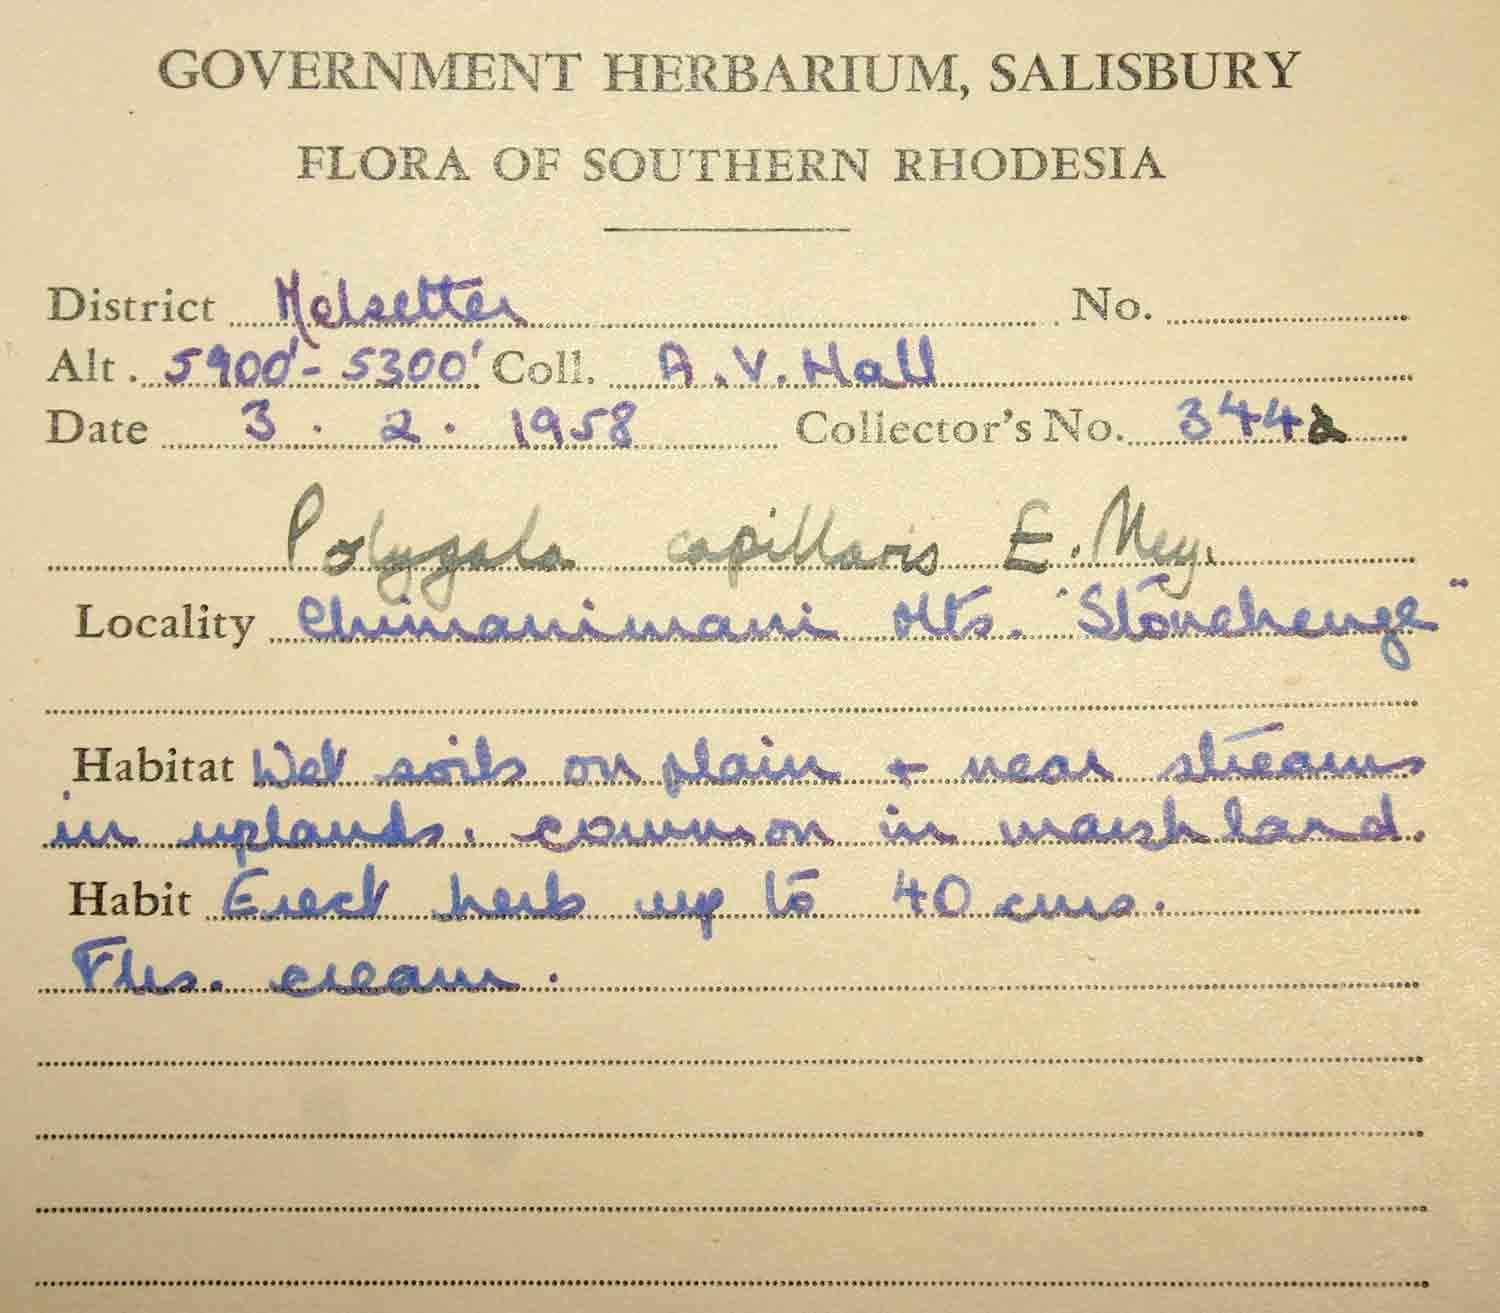 GOVERNMENT HERBARIUM, SALISBURY
FLORA OF SOUTHERN RHODESIA
District Melsetter No.
Alt. 5900'- 5300' Coll. A.V. Hall
Date 3. 2. 1958 Collector's No. 344a
Polygala capillaris E. Mey.
Locality Chimanimani Mts. "Stonehenge"
Habitat Wet soils on plain + near streams
in uplands. common in marshland.
Habit Erect herb up to 40 cms.
Flrs. cream.